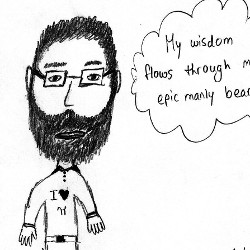 My wisdom
flows through m
epic manly bear
I ♥
π